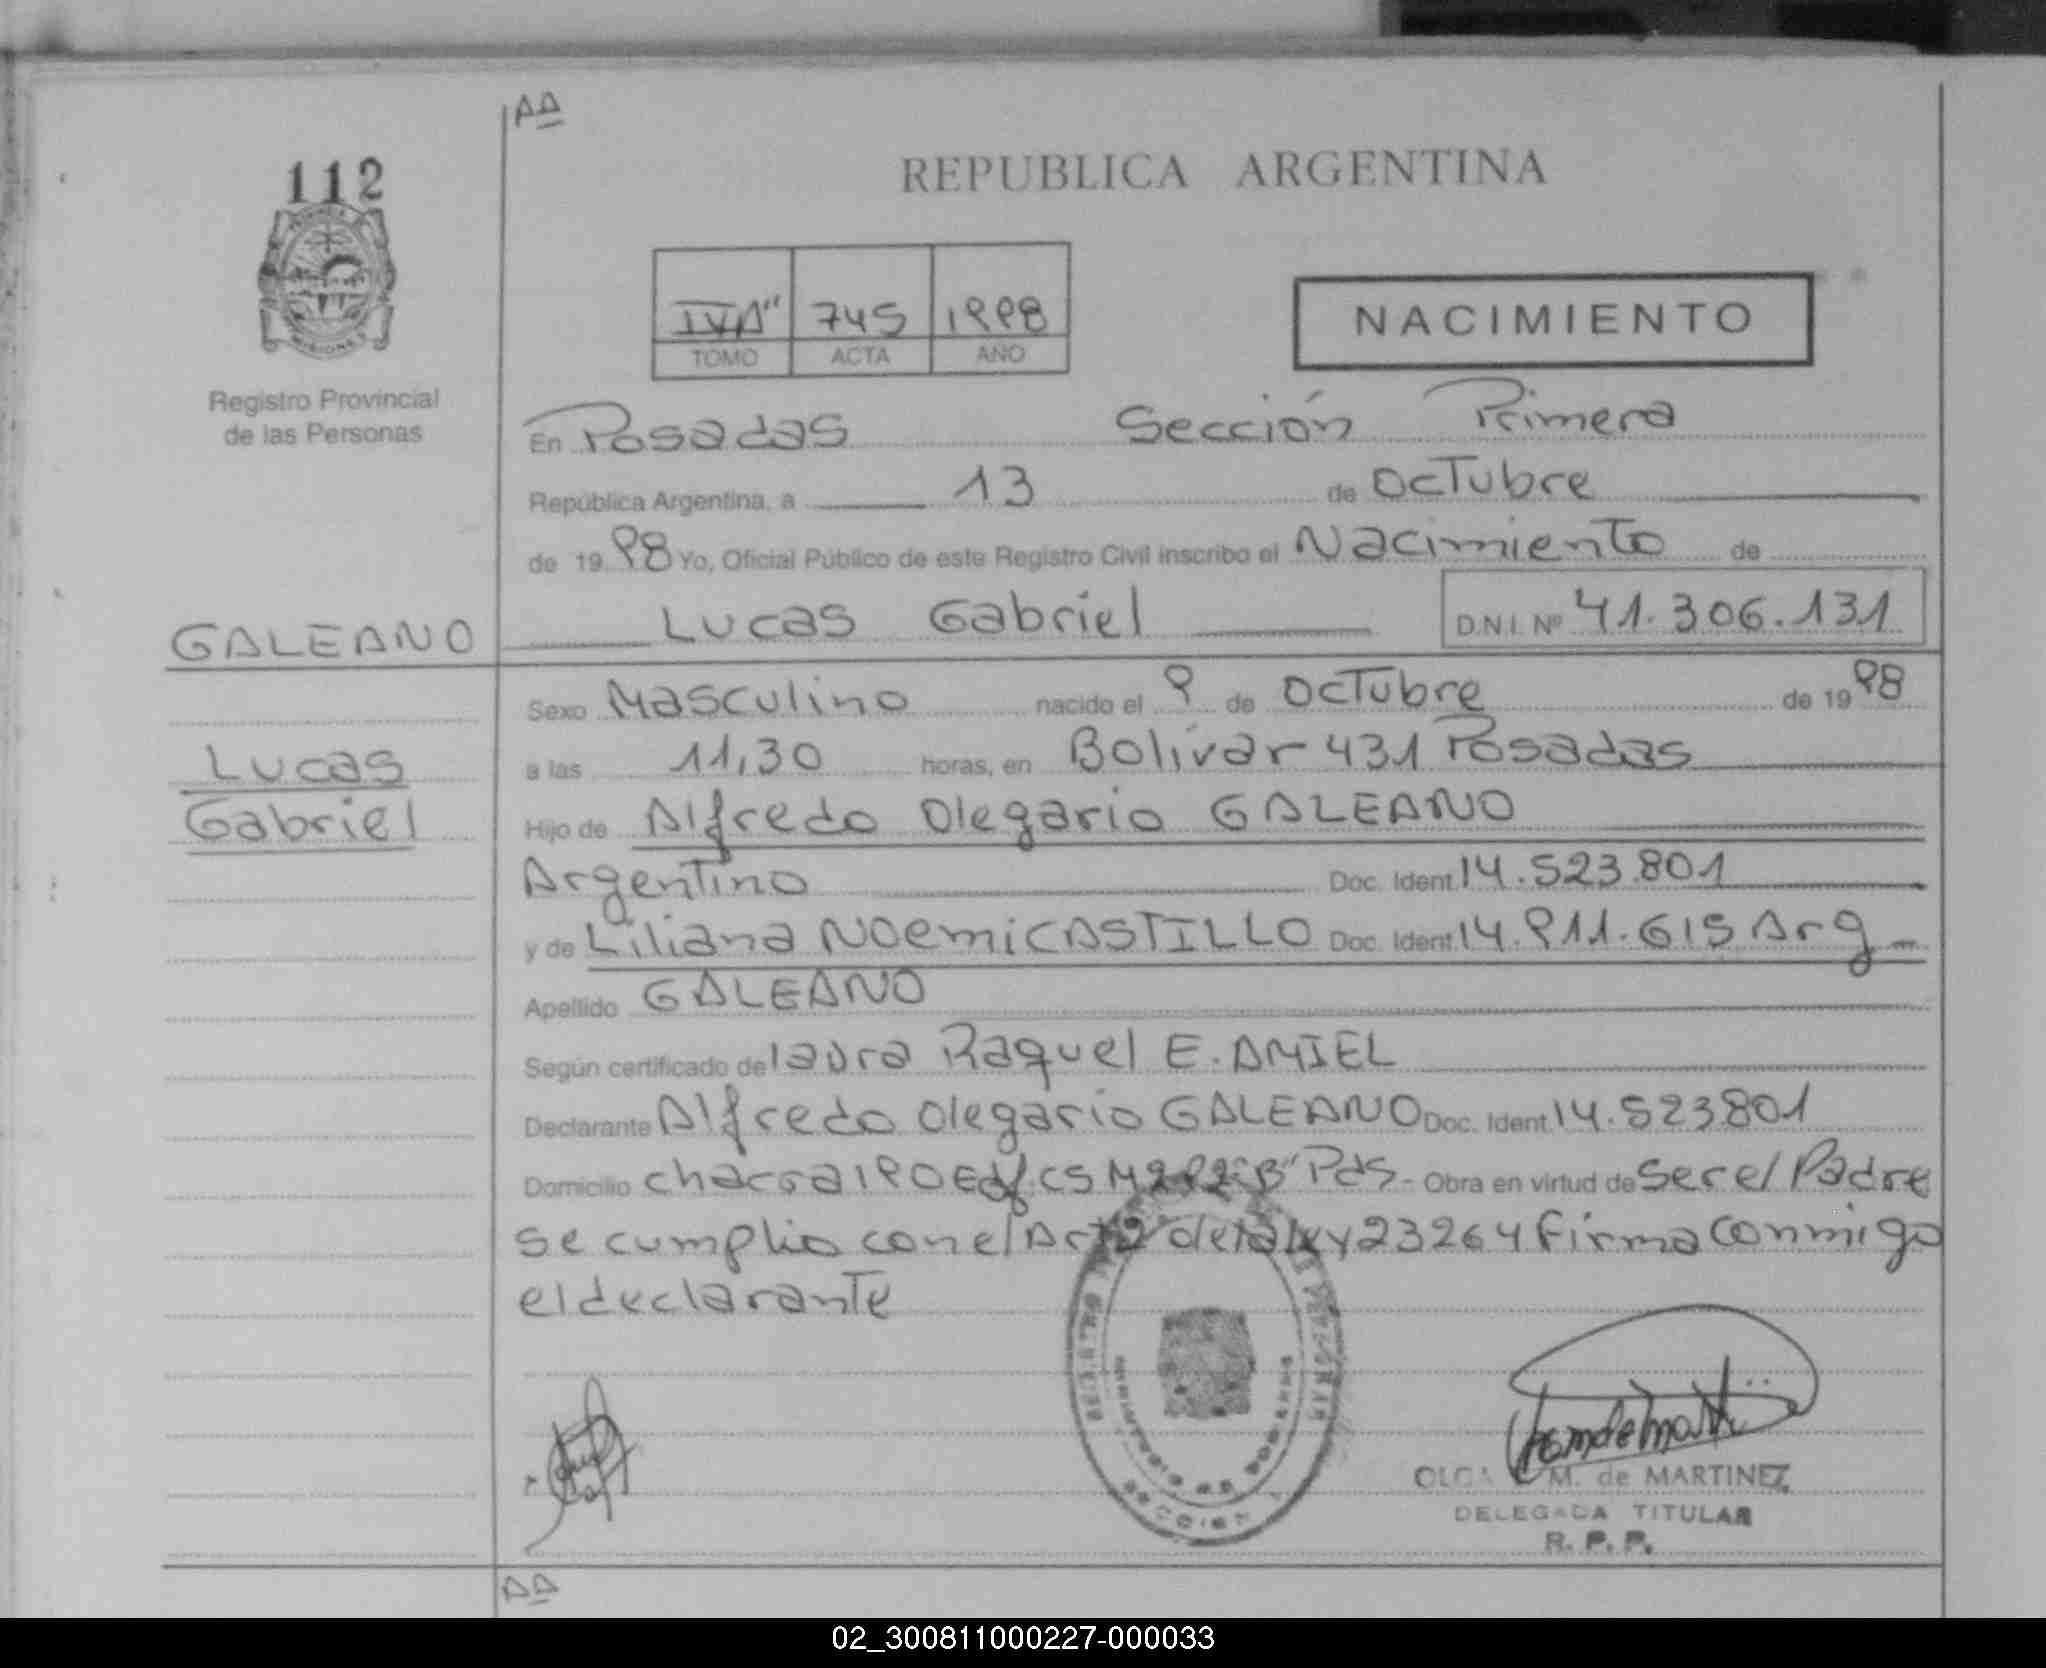 AA
112
MISIONES
Registro Provincial
de las Personas
REPUBLICA ARGENTINA
IV"A" 745 1998
TOMO ACTA AÑO
NACIMIENTO
En Posadas Sección Primera
República Argentina, a 13 de Octubre
de 1998 Yo, Oficial Público de este Registro Civil inscribo el Nacimiento de
GALEANO Lucas Gabriel D.N.I. Nº 41.306.131
Sexo Masculino nacido el 9 de Octubre de 1998
Lucas
Gabriel
a las 11,30 horas, en Bolívar 431 Posadas
Hijo de Alfredo Olegario GALEANO
Argentino Doc. Ident. 14.523.801
y de Liliana Noemi CASTILLO Doc. Ident. 14.911.615 Arg
Apellido GALEANO
Según certificado de laura Raquel E. AMIEL
Declarante Alfredo Olegario GALEANO Doc. Ident. 14.523.801
Domicilio chacra 190 Edf. CS M 292 "B" Pds - Obra en virtud de Ser el Padre
se cumplio con el Art 2 de la ley 23264 firma conmigo
el declarante
SECCION 1
OLGA M. de MARTINEZ
DELEGADA TITULAR
R. P. P.
AA
02_300811000227-000033